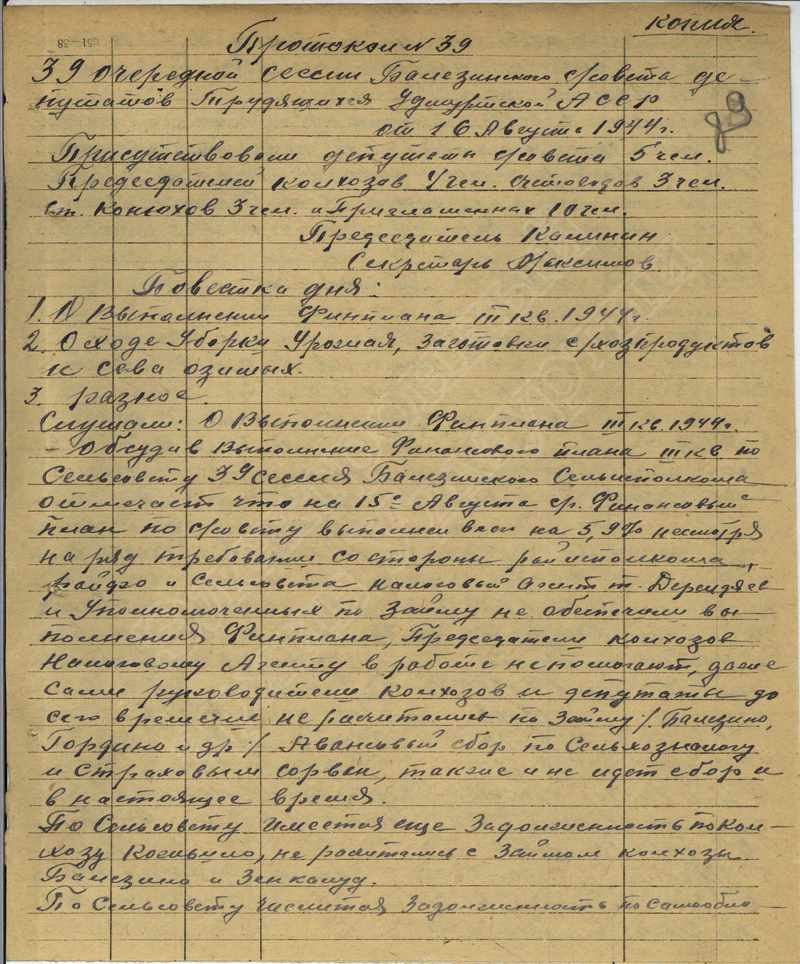 копия.
Протокол N 39
39 очередной сессии Балезинского с/совета де-
путатов Трудящихся Удмуртской АССР
от 16 Августа 1944 г.
89
Присутствовали депутаты с/совета 5 чел.
Председателей колхозов 4 чел. Счетоводов 3 чел.
ст. Конюхов 3 чел. и Приглашенных 10 чел.
Председатель Калинин
Секретарь Максимов
Повестка дня:
1. О Выполнении Финплана III кв. 1944 г.
2. О ходе Уборки Урожая, заготовки с/хозпродуктов
и сева озимых.
3. разное.
Слушали: О Выполнении Финплана III кв. 1944 г.
- Обсудив выполнение Финансового плана III кв по
Сельсовету 39 сессия Балезинского Сельисполкома
отмечает что на 15е Августа с/г. Финансовый
план по с/совету выполнен всего на 5,9% несмотря
на ряд требований со стороны райисполкома,
райфо и Сельсовета налоговый Агент т. Дерендяев
и Уполномоченных по Займу не обеспечили вы-
полнения Финплана, Председатели колхозов
Налоговому Агенту в работе не помогают, даже
сами руководители колхозов и депутаты до
сего времени не расчитались по Займу /. Балезино,
Гордино и др. / Авансовый сбор по Сельхозналогу
и страховым сорван, также и не идет сбор и
в настоящее время.
По Сельсовету имеется еще Задолженность по кол-
хозу, не расчитались с Займом колхозы
Балезино и
По Сельсовету числится Задолженность по самообло-